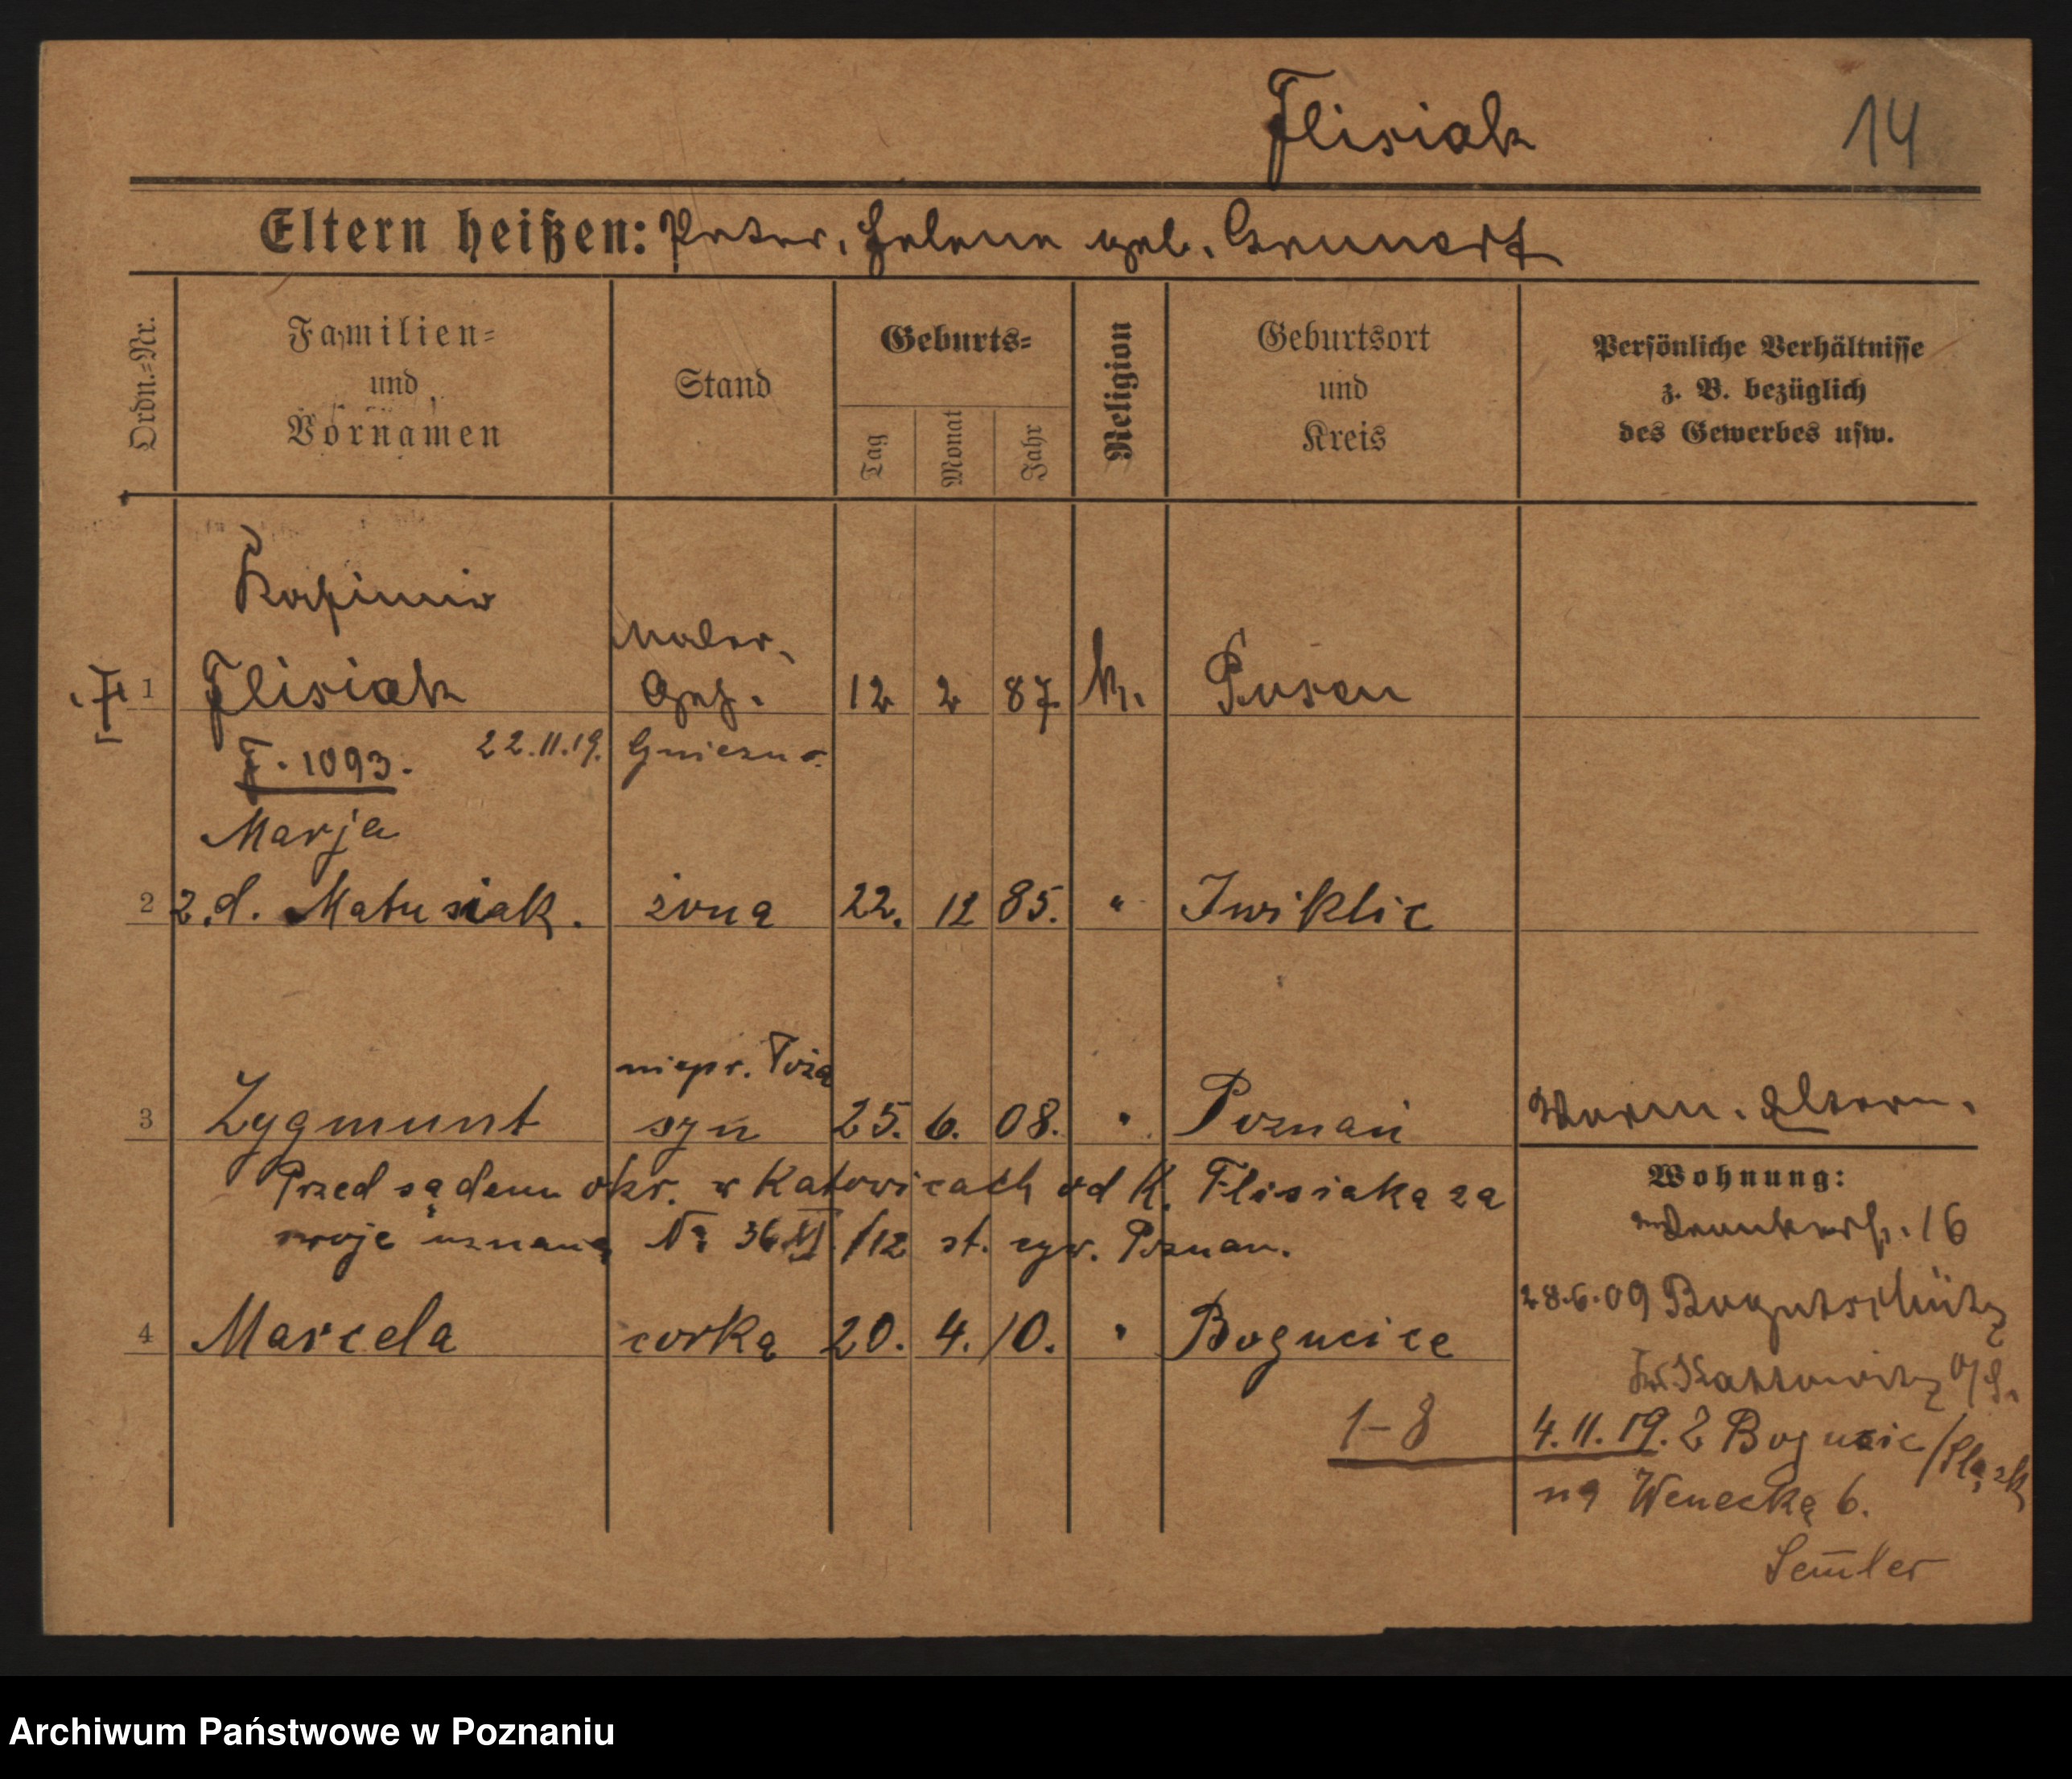 Flisiak
14
Eltern heißen: Peter, Helene geb. Grunert
Ordn.-Nr.
Familien-
und
Vornamen
Stand
Geburts-
Tag
Monat
Jahr
Religion
Geburtsort
und
Kreis
Persönliche Verhältnisse
z. B. bezüglich
des Gewerbes usw.
Kasimir
Maler-
1 Flisiak Geh. 12 2 87 k. Posen
F. 1093. 22.11.19. Gniezno
Marja
2 z. d. Matusiak. żona 22. 12 85. " Zwiklic
niepr. Toża
3 Zygmunt syn 25. 6. 08. " Poznań
Przed sądem okr. w Katowicach od K. Flisiaka za
swoje uznane Nr 36 XI/12 st. cyw. Poznan.
4 Marcela corka 20. 4. 10. " Bogucice
1-8
Worm. Eltern.
Wohnung:
16
28.6.09 Bogutschütz
Kr. Kattowitz O/S.
4.11.19. Z Bogucic/Śląsk
na Wenecką 6.
Semler
Archiwum Państwowe w Poznaniu